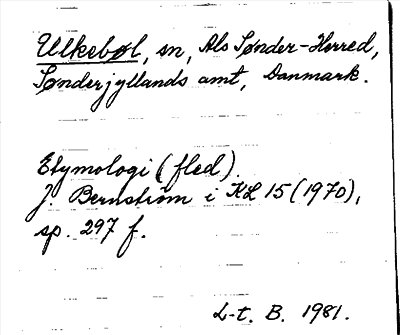 Ulkebøl, sn, Als Sønder-Herred,
Sønderjyllands amt, Danmark.
Etymologi (fled).
J. Bernström i KL 15 (1970),
sp. 297 f.
L-t. B. 1981.